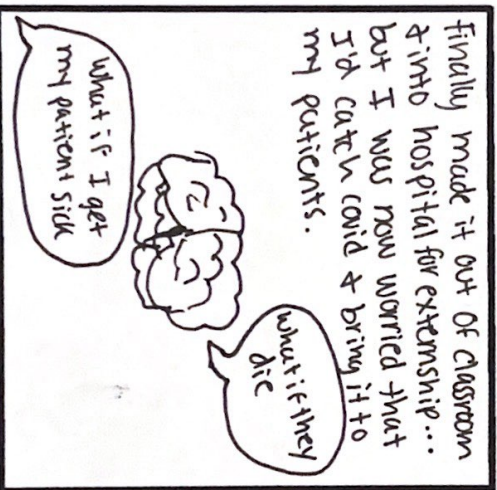 finally made it out of classroom
& into hospital for externship...
but I was now worried that
I'd catch covid & bring it to
my patients.
what if they
die
what if I get
my patient sick